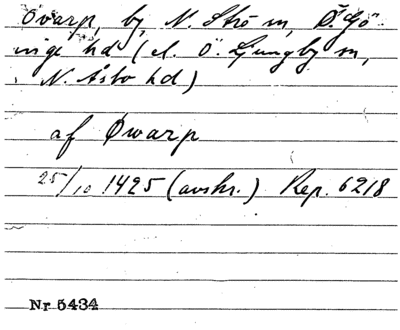 Ovarp, by, N. Strö sn, Ö. Gö
inge hd (el. Ö. Ljungby sn,
N. Åsbo hd)
af Øwarp
25/10 1425 (avskr.) Rep. 6218
Nr 5434